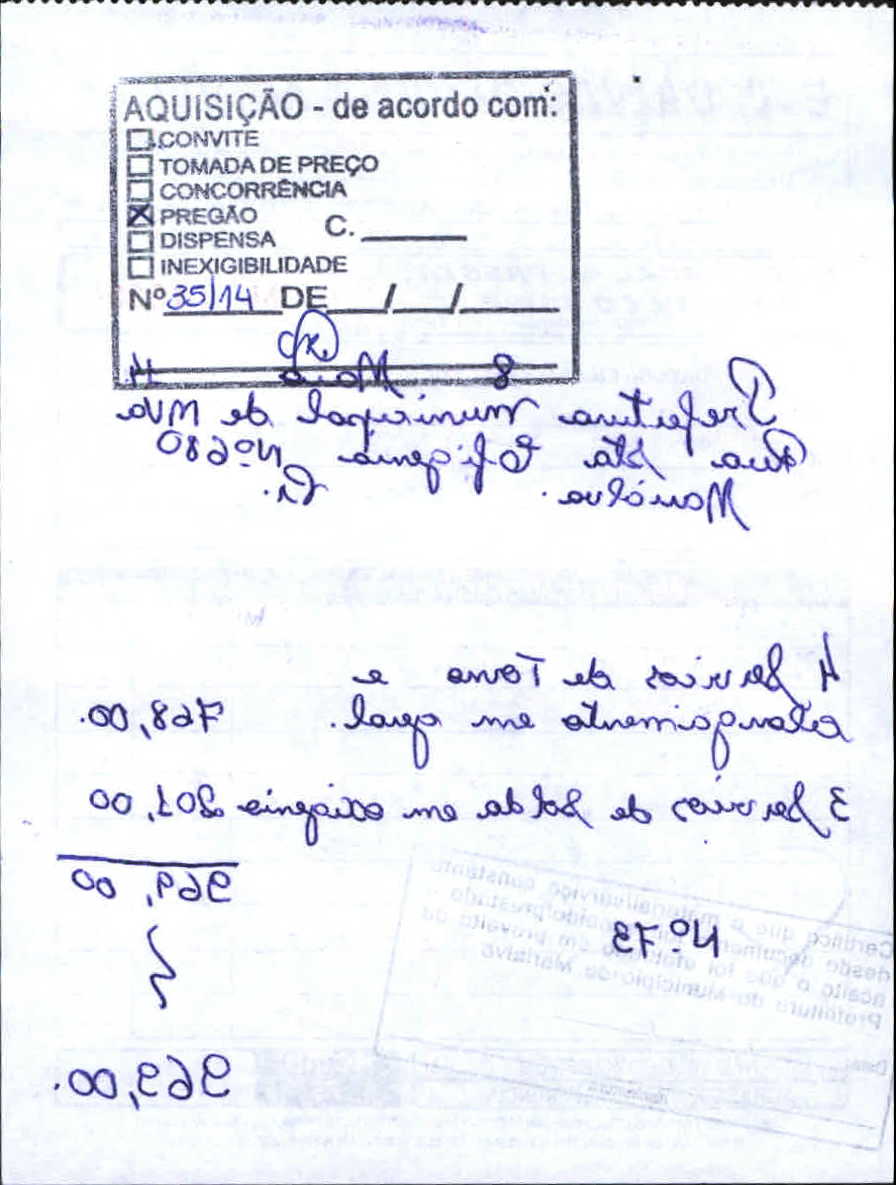 AQUISIÇÃO - de acordo com:
CONVITE
TOMADA DE PREÇO
CONCORRÊNCIA
PREGÃO
C. ____
DISPENSA
INEXIGIBILIDADE
Nº 35/14 DE __/__/____
8 Maio 14
Prefeitura municipal de MVA
Rua Sta Efigenia Nº 680
Marialva. Pr.
4 Servicos de Torno e
alongaimento em geral. 768,00.
3 Servicos de Solda em oxigenio 201,00
969,00
Nº 73
Certifico que o material/serviço constante
deste documento foi recebido/prestado
aceito e que foi efetuado em proveito da
Prefeitura do Município de Marialva
969,00.